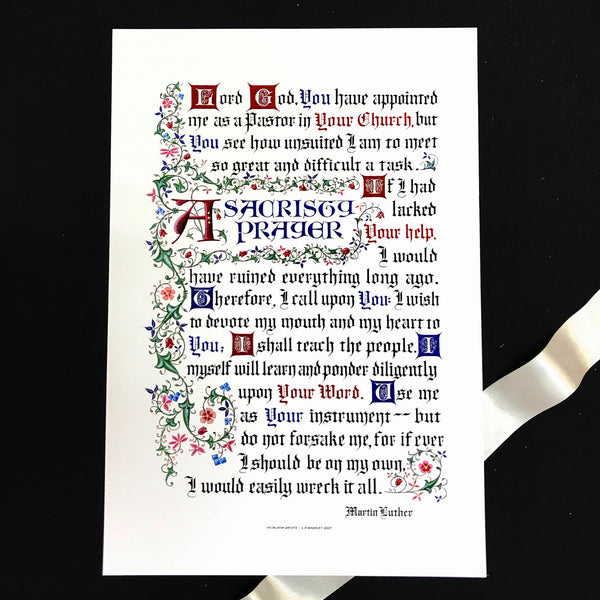 Lord God, You have appointed
me as a Pastor in Your Church, but
You see how unsuited I am to meet
so great and difficult a task.
If I had
A SACRISTY
PRAYER
lacked
Your help,
I would
have ruined everything long ago.
Therefore, I call upon You: I wish
to devote my mouth and my heart to
You; I shall teach the people. I
myself will learn and ponder diligently
upon Your Word. Use me
as Your instrument -- but
do not forsake me, for if ever
I should be on my own,
I would easily wreck it all.
Martin Luther